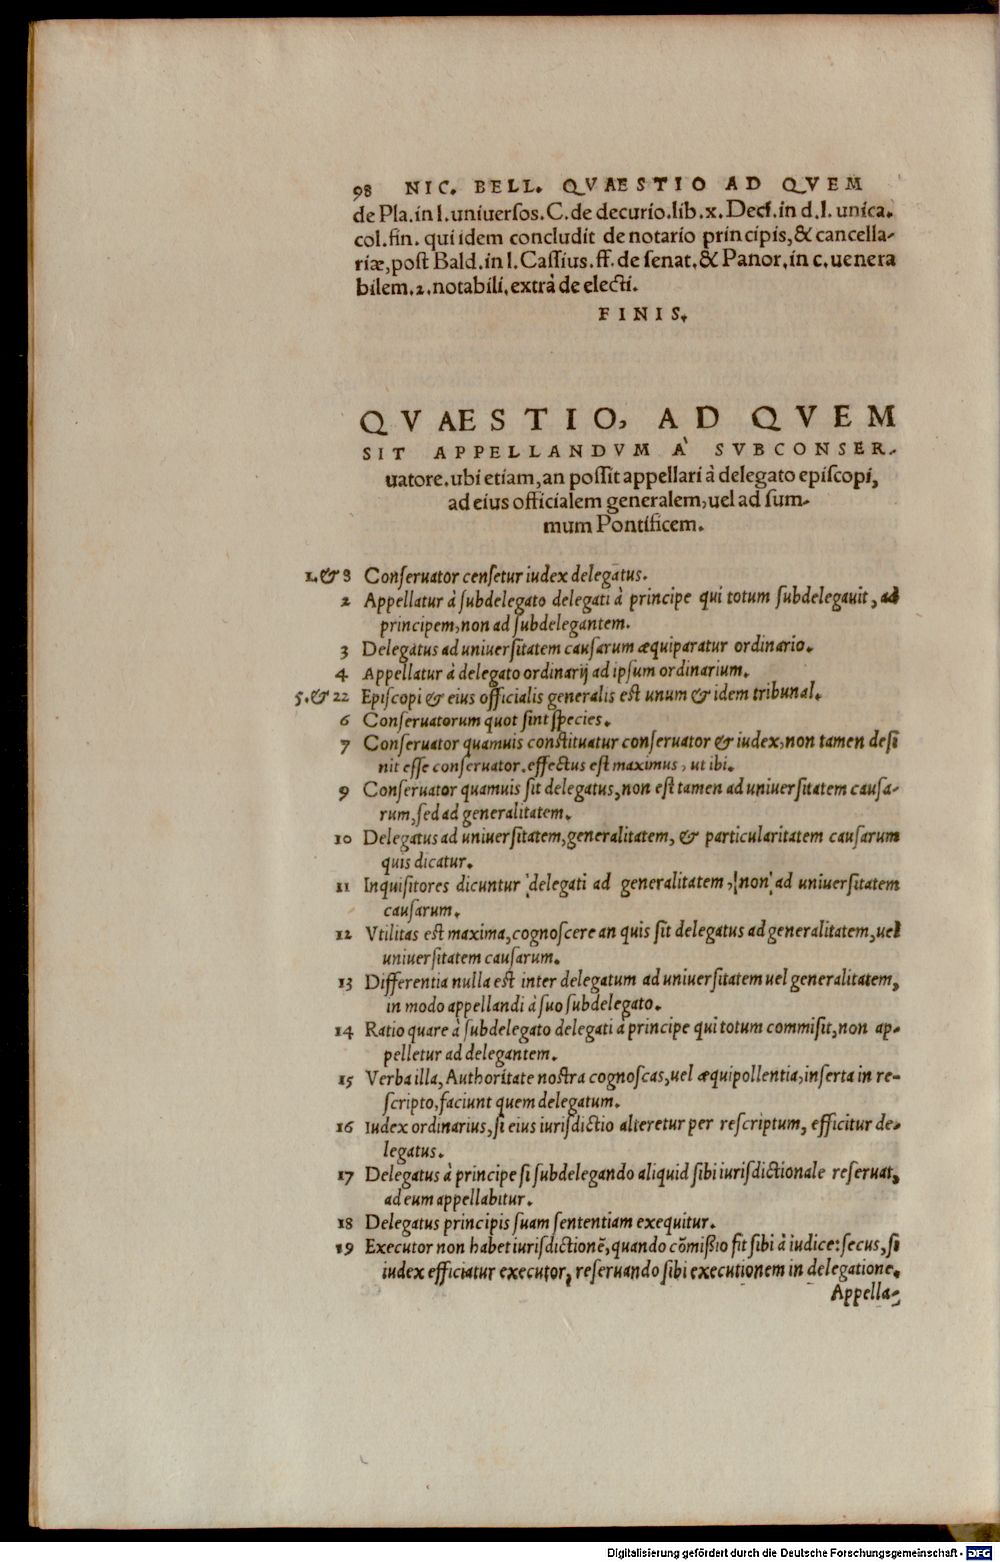 98 NIC. BELL. QVAESTIO AD QVEM
de Pla. in l. uniuersos. C. de decurio. lib. x. Decſ. in d. l. unica.
col. fin. qui idem concludit de notario principis, & cancella-
riæ, poſt Bald. in l. Caſſius. ff. de ſenat. & Panor. in c. uenera
bilem. 2. notabili, extrà de electi.
FINIS.
QVAESTIO, AD QVEM
SIT APPELLANDVM A' SVBCONSER-
uatore. ubi etiam, an poſſit appellari à delegato epiſcopi,
ad eius officialem generalem, uel ad ſum-
mum Pontificem.
1. & 8 Conſeruator cenſetur iudex delegatus.
2 Appellatur à ſubdelegato delegati à principe qui totum ſubdelegauit, ad
principem, non ad ſubdelegantem.
3 Delegatus ad uniuerſitatem cauſarum æquiparatur ordinario.
4 Appellatur à delegato ordinarij ad ipſum ordinarium.
5. & 22 Epiſcopi & eius officialis generalis eſt unum & idem tribunal.
6 Conſeruatorum quot ſint ſpecies.
7 Conſeruator quamuis conſtituatur conſeruator & iudex, non tamen deſi
nit eſſe conſeruator. effectus eſt maximus, ut ibi.
9 Conſeruator quamuis ſit delegatus, non eſt tamen ad uniuerſitatem cauſa-
rum, ſed ad generalitatem.
10 Delegatus ad uniuerſitatem, generalitatem, & particularitatem cauſarum
quis dicatur.
11 Inquiſitores dicuntur delegati ad generalitatem, non ad uniuerſitatem
cauſarum.
12 Vtilitas eſt maxima, cognoſcere an quis ſit delegatus ad generalitatem, uel
uniuerſitatem cauſarum.
13 Differentia nulla eſt inter delegatum ad uniuerſitatem uel generalitatem,
in modo appellandi à ſuo ſubdelegato.
14 Ratio quare à ſubdelegato delegati à principe qui totum commiſit, non ap-
pelletur ad delegantem.
15 Verba illa, Authoritate noſtra cognoſcas, uel æquipollentia, inſerta in re-
ſcripto, faciunt quem delegatum.
16 Iudex ordinarius, ſi eius iuriſdictio alteretur per reſcriptum, efficitur de-
legatus.
17 Delegatus à principe ſi ſubdelegando aliquid ſibi iuriſdictionale reſeruat,
ad eum appellabitur.
18 Delegatus principis ſuam ſententiam exequitur.
19 Executor non habet iuriſdictionē, quando cōmiſſio fit ſibi à iudice: ſecus, ſi
iudex efficiatur executor, reſeruando ſibi executionem in delegatione.
Appella-
Digitalisierung gefördert durch die Deutsche Forschungsgemeinschaft - DFG